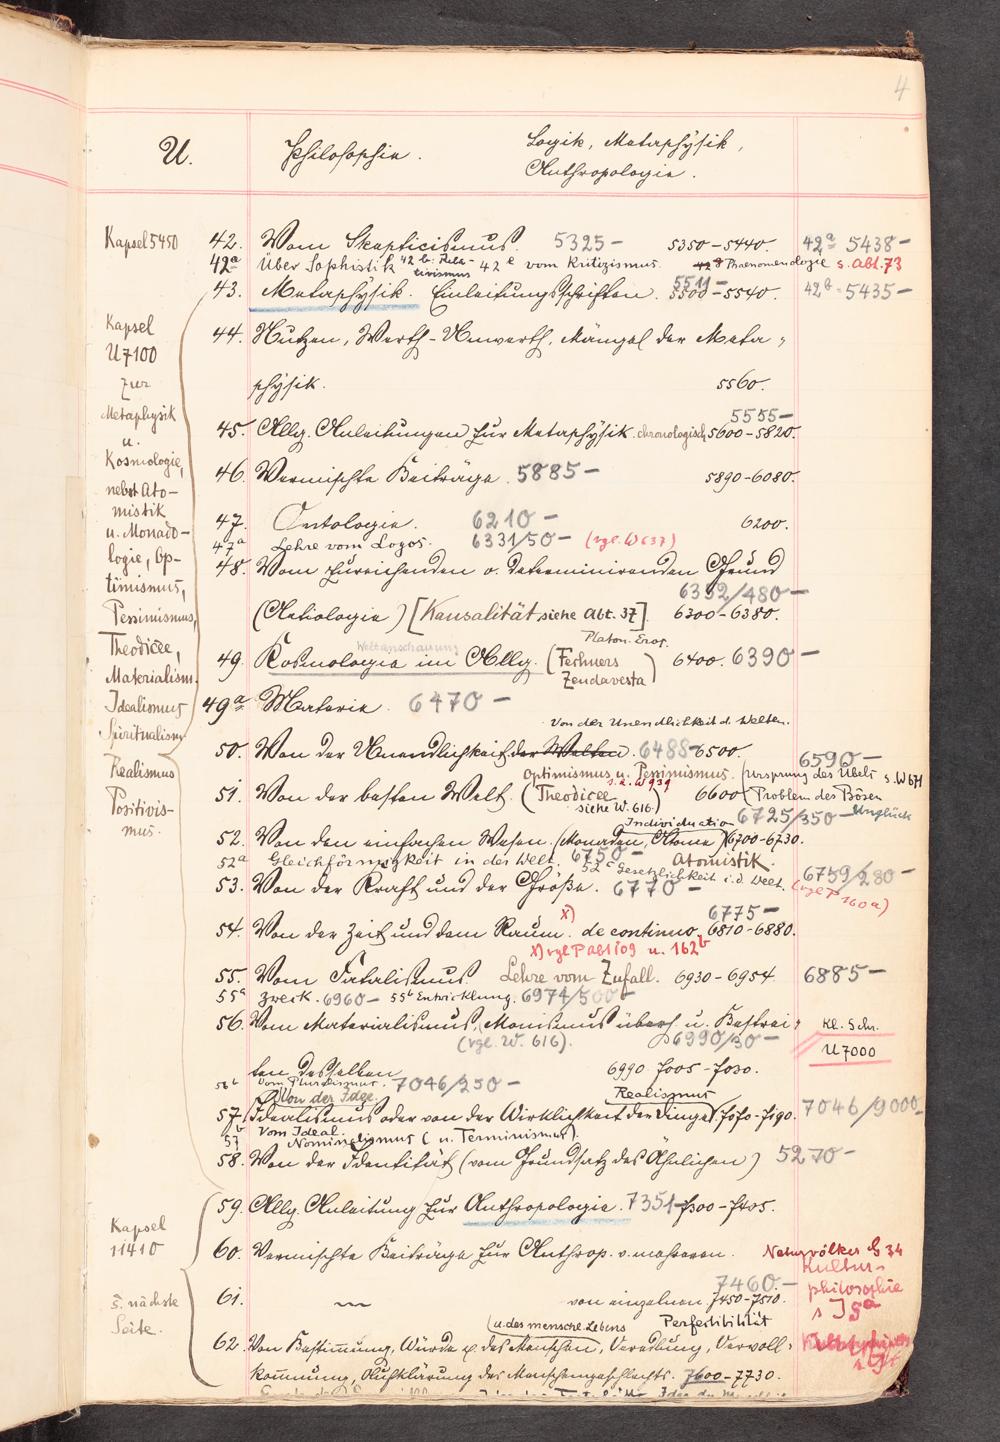 4
U. Philosophie. Logik, Metaphysik,
Anthropologie.
Kapsel 5450 42. Vom Skepticismus. 5325- 5350-5440. 42a 5438-
42a Über Sophistik 42 b. Rela-tivismus 42 c vom Kritizismus. 42 d Phaenomenologie s. Abt. 73
43. Metaphysik. Einleitungsschriften. 5511- 5500-5540. 42b 5435-
Kapsel
U 7100
zur
Metaphysik
u.
Kosmologie,
nebst Ato-
mistik
u. Monado-
logie, Op-
timismus,
Pessimismus,
Theodicee,
Materialism.
Idealismus
Spiritualism.
Realismus
Positivis-
mus.
44. Nutzen, Werth-Unwerth, Mängel der Meta-
physik. 5560.
5555-
45. Allg. Anleitungen zur Metaphysik. chronologisch 5600-5820.
46. Vermischte Beiträge. 5885- 5890-6080.
47. Ontologie. 6210- 6200.
47a Lehre vom Logos. 6331/50- (vgl. W 637)
48. Vom zureichenden o. determinirenden Grund
6392/480-
(Aetiologie) [Kausalität siehe Abt. 37]. 6300-6380.
Weltanschauung Platon. Eros.
49. Kosmologie im Allg. (Fechners Zendavesta) 6400. 6390-
49a Materie. 6470-
Von der Unendlichkeit d. Welten.
50. Von der Unendlichkeit der Welten. 6488- 6500.
6590-
Optimismus u. Pessimismus. (Ursprung des Übels s. W 671
s. a. W 939
51. Von der besten Welt. (Theodicee siehe W. 616.) 6600 (Problem des Bösen
Individuation 6725/350- Unglück
52. Von den einfachen Wesen. (Monaden, Atome) 6700-6730.
52a Gleichförmigkeit in der Welt. 6750- Atomistik.
52c Gesetzlichkeit i. d. Welt. 6759/280-
53. Von der Kraft und der Größe. 6770- (vgl P 160a)
x) 6775-
54. Von der Zeit und dem Raum. de continuo 6810-6880.
x) vgl P abt 109 u. 162b
55. Vom Fatalismus. Lehre vom Zufall. 6930-6954 6885-
55a Zweck. 6960- 55b Entwicklung. 6974/5000-
56. Vom Materialismus, (Monismus überh. u. Bestrei-
(vgl. W. 616). 6990/30-
Kl. Schr.
U 7000
ten desselben 6990-7005-7030.
56b Vom Pluralismus. 7046/250-
Von der Idee. Realismus
57. Idealismus oder von der Wirklichkeit der Dinge. 7070-7190. 7046/9000-
57b Vom Ideal.
Nominalismus (u. Terminismus).
58. Von der Identität (vom Grundsatz des Ähnlichen) 5270-
59. Allg. Anleitung zur Anthropologie. 7351- 7300-7405.
Kapsel
11410
60. Vermischte Beiträge zur Anthrop. v. mehreren. Naturvölker s G 34
Kultur-
philosophie
s J 5a
7460.-
61. von einzelnen 7450-7510.
s. nächste
Seite.
(u. des menschl. Lebens Perfectibilität
62. Von Bestimmung, Würde p. des Menschen, Veredlung, Vervoll-
kommnung, Aufklärung des Menschengeschlechts. 7600-7730.